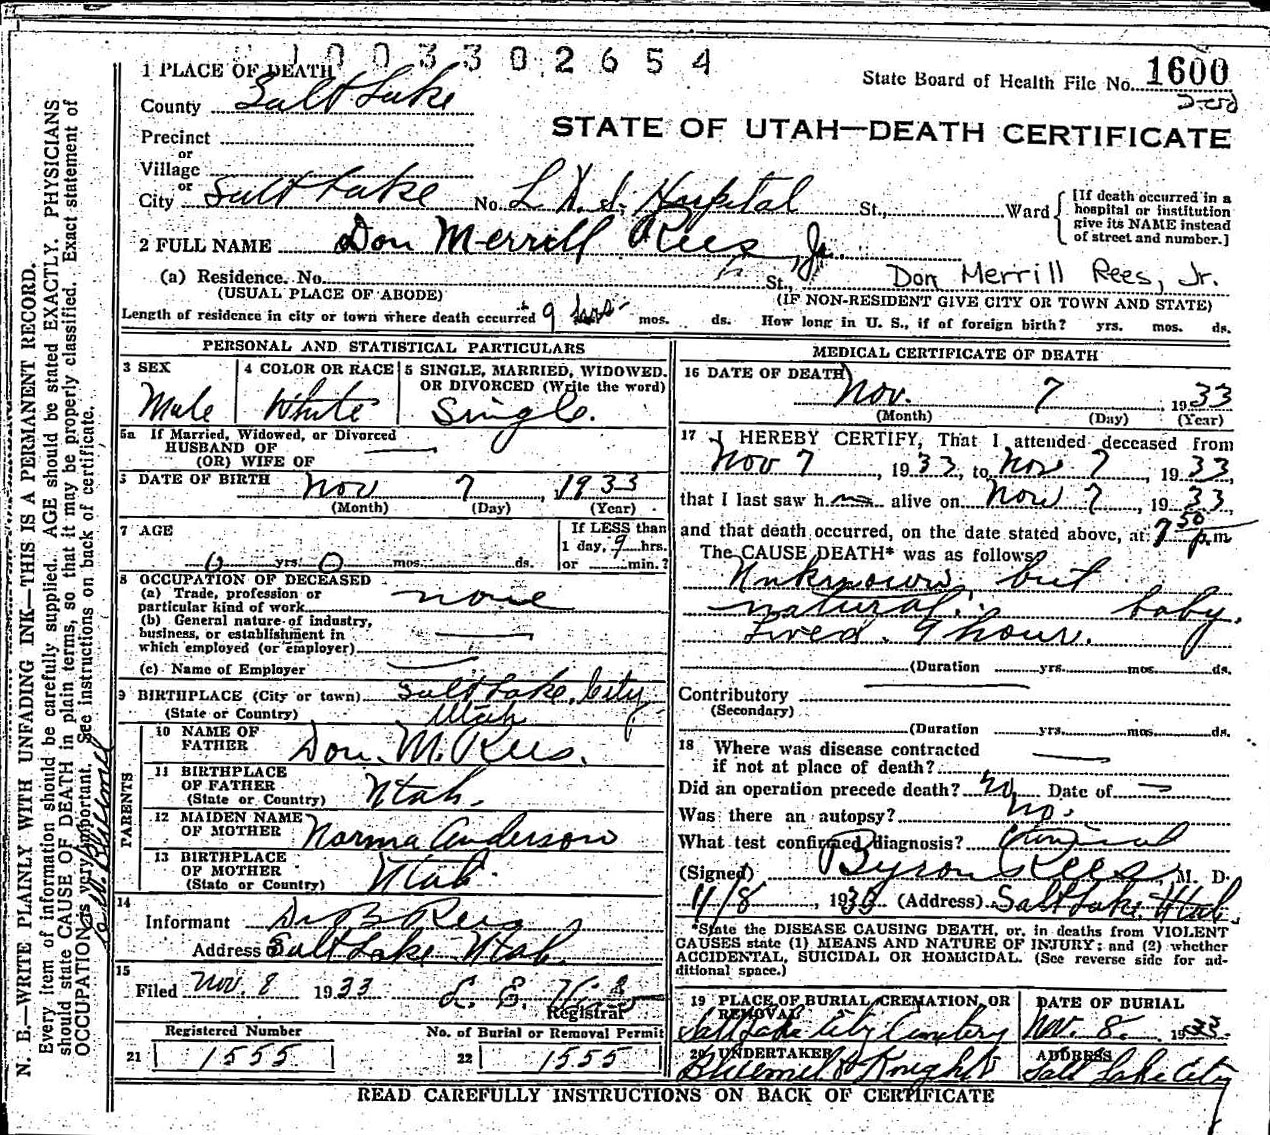 1003302654
1 PLACE OF DEATH
State Board of Health File No. 1600
County Salt Lake
STATE OF UTAH—DEATH CERTIFICATE
Precinct
or
Village
or
City Salt Lake No. L D S Hospital St., Ward
[If death occurred in a
hospital or institution
give its NAME instead
of street and number.]
2 FULL NAME Don Merrill Rees, Jr.
(a) Residence. No. St., Don Merrill Rees, Jr.
(USUAL PLACE OF ABODE) (IF NON-RESIDENT GIVE CITY OR TOWN AND STATE)
Length of residence in city or town where death occurred 9 hrs mos. ds. How long in U. S., if of foreign birth? yrs. mos. ds.
PERSONAL AND STATISTICAL PARTICULARS
3 SEX
Male
4 COLOR OR RACE
White
5 SINGLE, MARRIED, WIDOWED.
OR DIVORCED (Write the word)
Single.
5a If Married, Widowed, or Divorced
HUSBAND OF
(OR) WIFE OF
DATE OF BIRTH Nov 7, 1933
(Month) (Day) (Year)
7 AGE
0 yrs. 0 mos. ds.
If LESS than
1 day, 9 hrs.
or min.?
8 OCCUPATION OF DECEASED
(a) Trade, profession or
particular kind of work none
(b) General nature of industry,
business, or establishment in
which employed (or employer)
(c) Name of Employer
9 BIRTHPLACE (City or town) Salt Lake City
(State or Country) Utah
PARENTS
10 NAME OF
FATHER Don. M. Rees.
11 BIRTHPLACE
OF FATHER
(State or Country) Utah.
12 MAIDEN NAME
OF MOTHER Norma Anderson
13 BIRTHPLACE
OF MOTHER
(State or Country) Utah.
14
Informant Dr B Rees
Address Salt Lake Utah.
15
Filed Nov. 8 1933 L. E.
Registrar
Registered Number
21 1555
No. of Burial or Removal Permit
22 1555
MEDICAL CERTIFICATE OF DEATH
16 DATE OF DEATH
Nov. 7, 1933
(Month) (Day) (Year)
17 I HEREBY CERTIFY, That I attended deceased from
Nov 7, 1933, to Nov 7 1933,
that I last saw h alive on Nov 7, 1933,
and that death occurred, on the date stated above, at 7 50 p.m
The CAUSE DEATH* was as follows
Unknown, but
natural. baby
Lived. 9 hour.
(Duration yrs. mos. ds.
Contributory
(Secondary)
(Duration yrs. mos. ds.
18 Where was disease contracted
if not at place of death?
Did an operation precede death? No Date of
Was there an autopsy? no.
What test confirmed diagnosis?
(Signed) Byron Rees, M. D.
11/8, 1933 (Address) Salt Lake, Utah.
*State the DISEASE CAUSING DEATH, or, in deaths from VIOLENT
CAUSES state (1) MEANS AND NATURE OF INJURY; and (2) whether
ACCIDENTAL, SUICIDAL OR HOMICIDAL. (See reverse side for ad-
ditional space.)
19 PLACE OF BURIAL, CREMATION, OR
REMOVAL
Salt Lake City Cemetery
DATE OF BURIAL
Nov. 8. 1933
20 UNDERTAKER
Bluemel & Knights
ADDRESS
Salt Lake City
READ CAREFULLY INSTRUCTIONS ON BACK OF CERTIFICATE
N. B.—WRITE PLAINLY WITH UNFADING INK—THIS IS A PERMANENT RECORD.
Every item of information should be carefully supplied. AGE should be stated EXACTLY. PHYSICIANS
should state CAUSE OF DEATH in plain terms, so that it may be properly classified. Exact statement of
OCCUPATION is very important. See instructions on back of certificate.